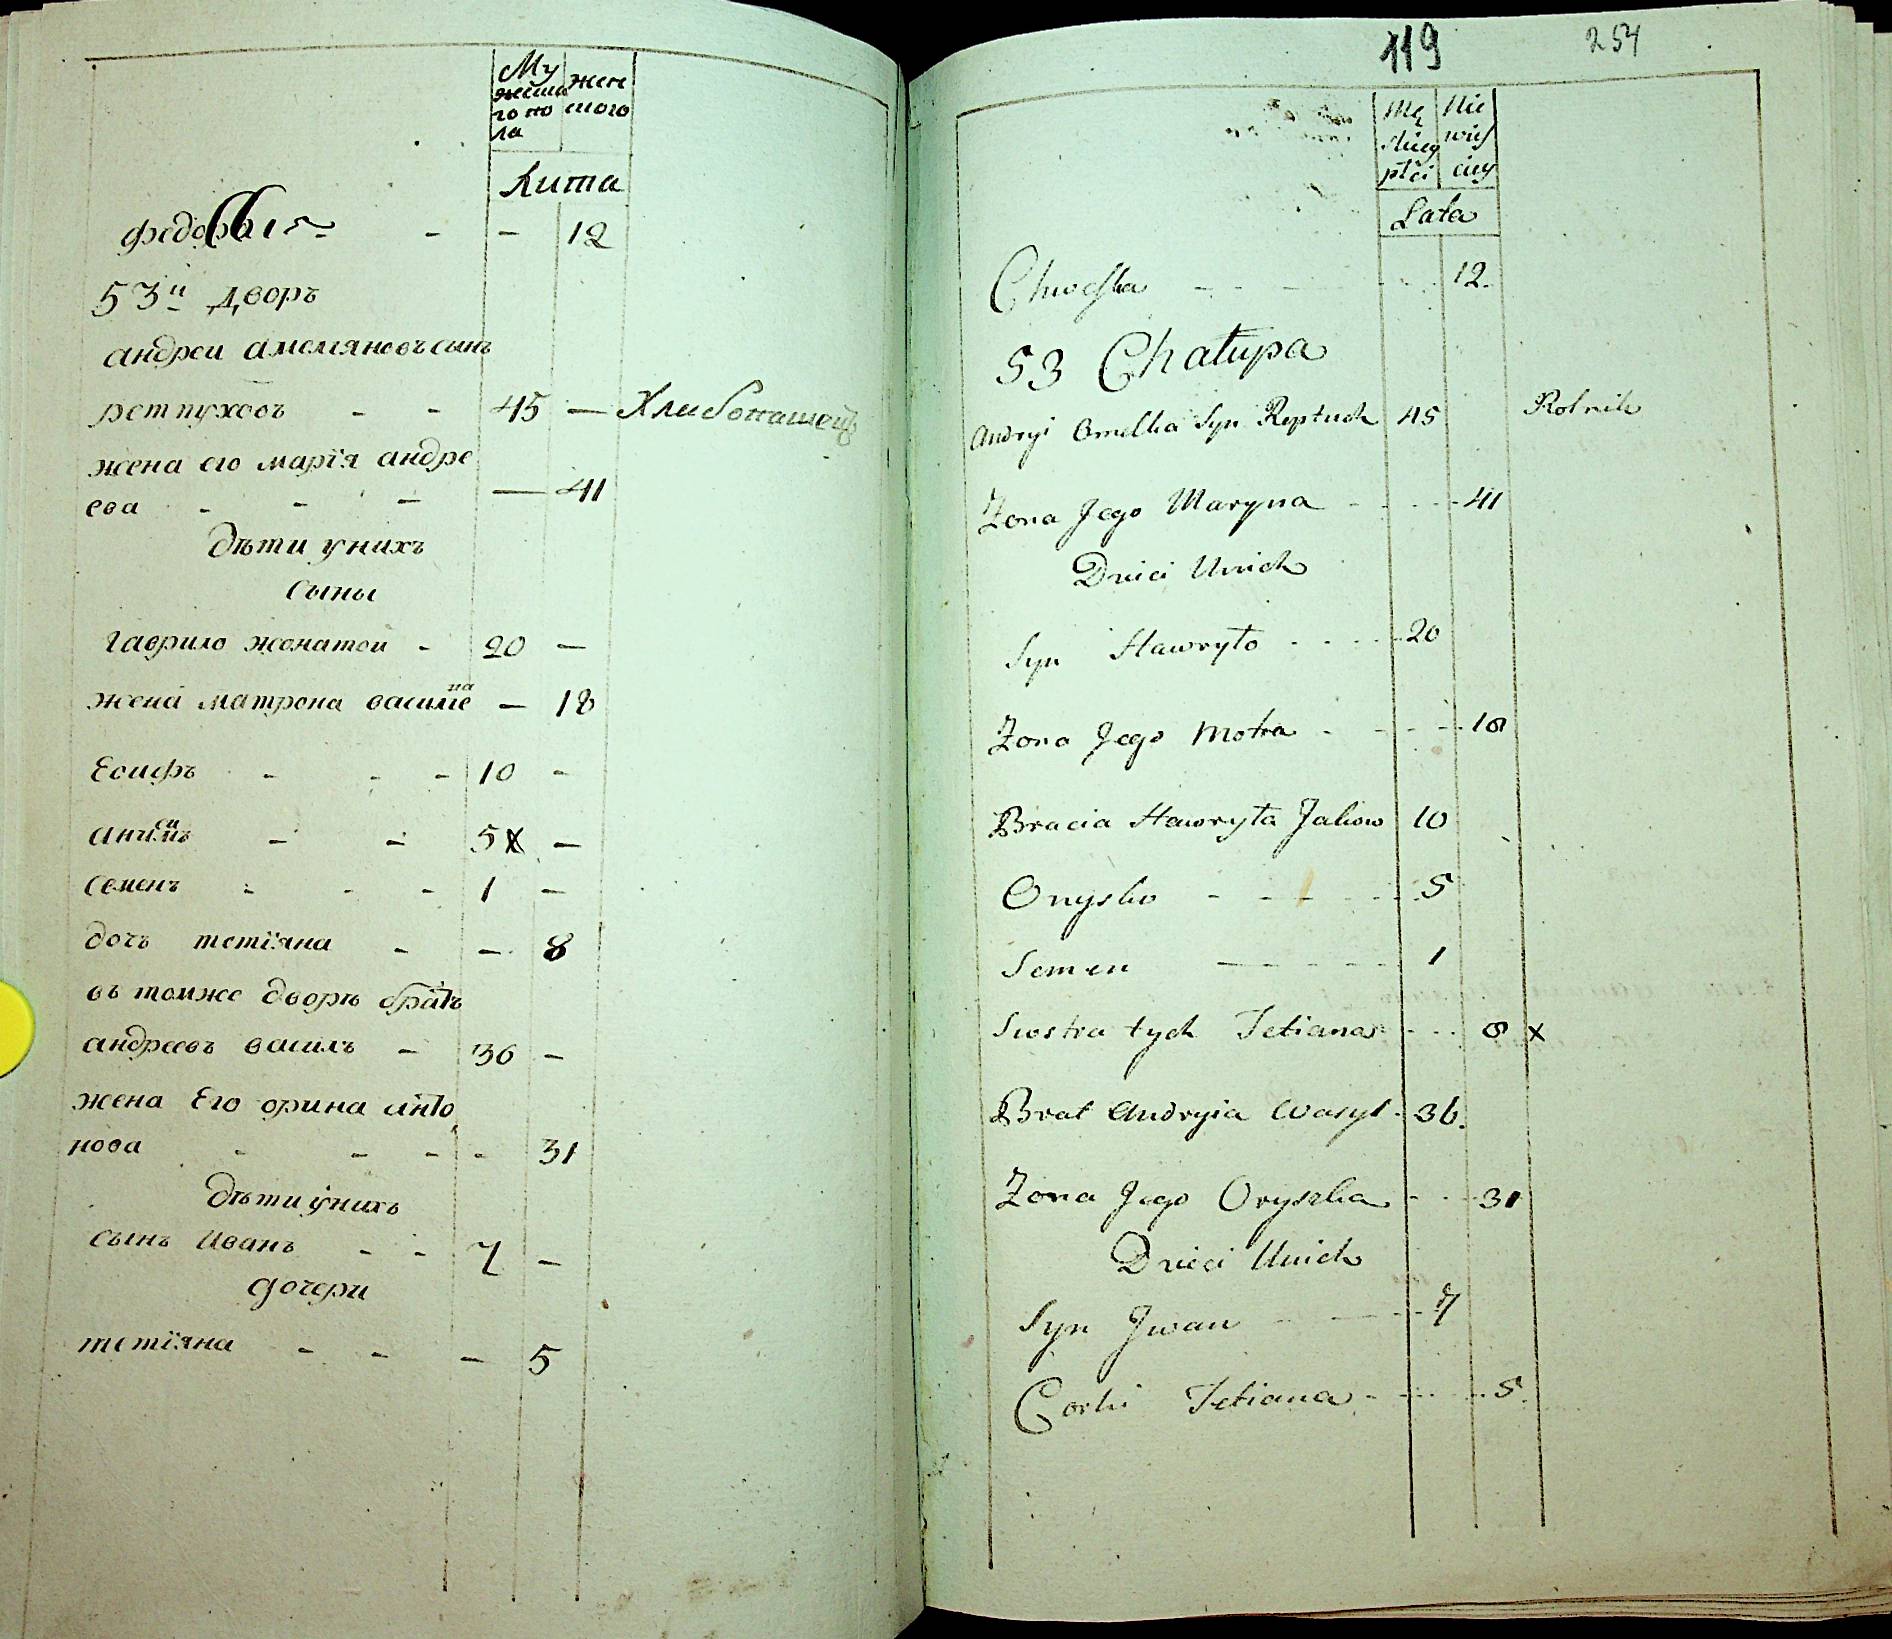 Му
жеска
го по
ла
жен
ского
Лита
12
53й дворъ
андреи амеляновъ сынъ
рептуховъ - - 45 — Хлибопашецъ
жена его марія андре
ева - - - — 41
дѣти у нихъ
сыны
гаврило женатой - 20 —
жена матрона василіе
ва — 18
Есифъ - - - 10 -
5 —
семенъ - - - 1 —
дочъ тетіяна - — 8
въ томже дворѣ братъ
андреевъ василъ — 36 —
жена Его орина анто
нова - - - - 31
дѣти у нихъ
сынъ иванъ - - 7 —
дочери
тетіяна - - — 5
119
254
Mę
skiey
płci
Nie
wieś
ciey
Lata
12.
53 Chałupa
Andryi Omelka Syn Reptuch 45 Rolnik
Zona Jego Maryna - - - - 41
Dzieci Unich
Syn Hawryło - - - - 20
Zona Jego Motra - - - - 18
Bracia Hawryła Jakow 10
Onysko - - - - - 5
Semen — - - - 1
Siostra tych Tetiana - - - 8 x
Brat Andryia Wasyl - 36.
Zona Jego Oryszka - - - 31
Dzieci Unich
Syn Jwan - — - - 7
Corki Tetiana - - - - 5.